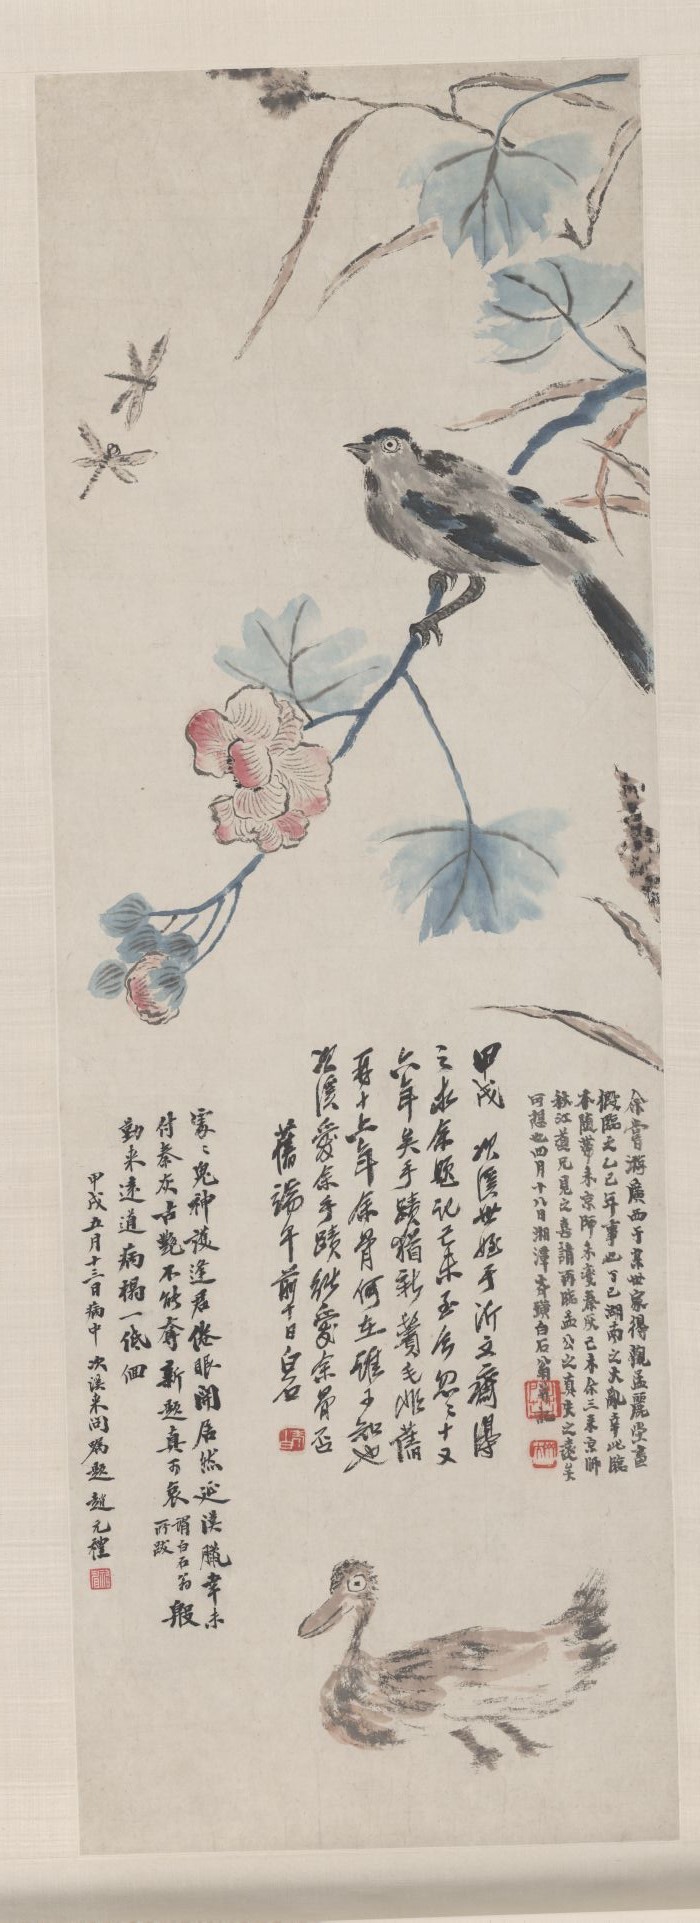 余嘗游廣西于某世家得觀孟麗堂畫
臨之乙巳年事也丁巳湖南之大亂幸此臨
本隨帶來京師未變秦灰己未余三來京師
秋江荷兄見之喜請再臨孟公之真失之遠矣
可想也四月十八日湘潭齊璜白石翁并記
甲戌次溪世姪于沂文齋得
之求余題記己未至今忽忽十又
六年矣手蹟猶新鬢毛非舊
再十六年余骨何在誰可知也
次溪愛余手蹟能愛余骨否
舊端午前十日白石
處處鬼神護逢君倦眼開居然延漢臘幸未
付秦灰古艷不能奪新題真可哀謂白石翁所跋殷
勤來遠道病榻一低佪
甲戌五月十三日病中次溪來問為題趙元禮